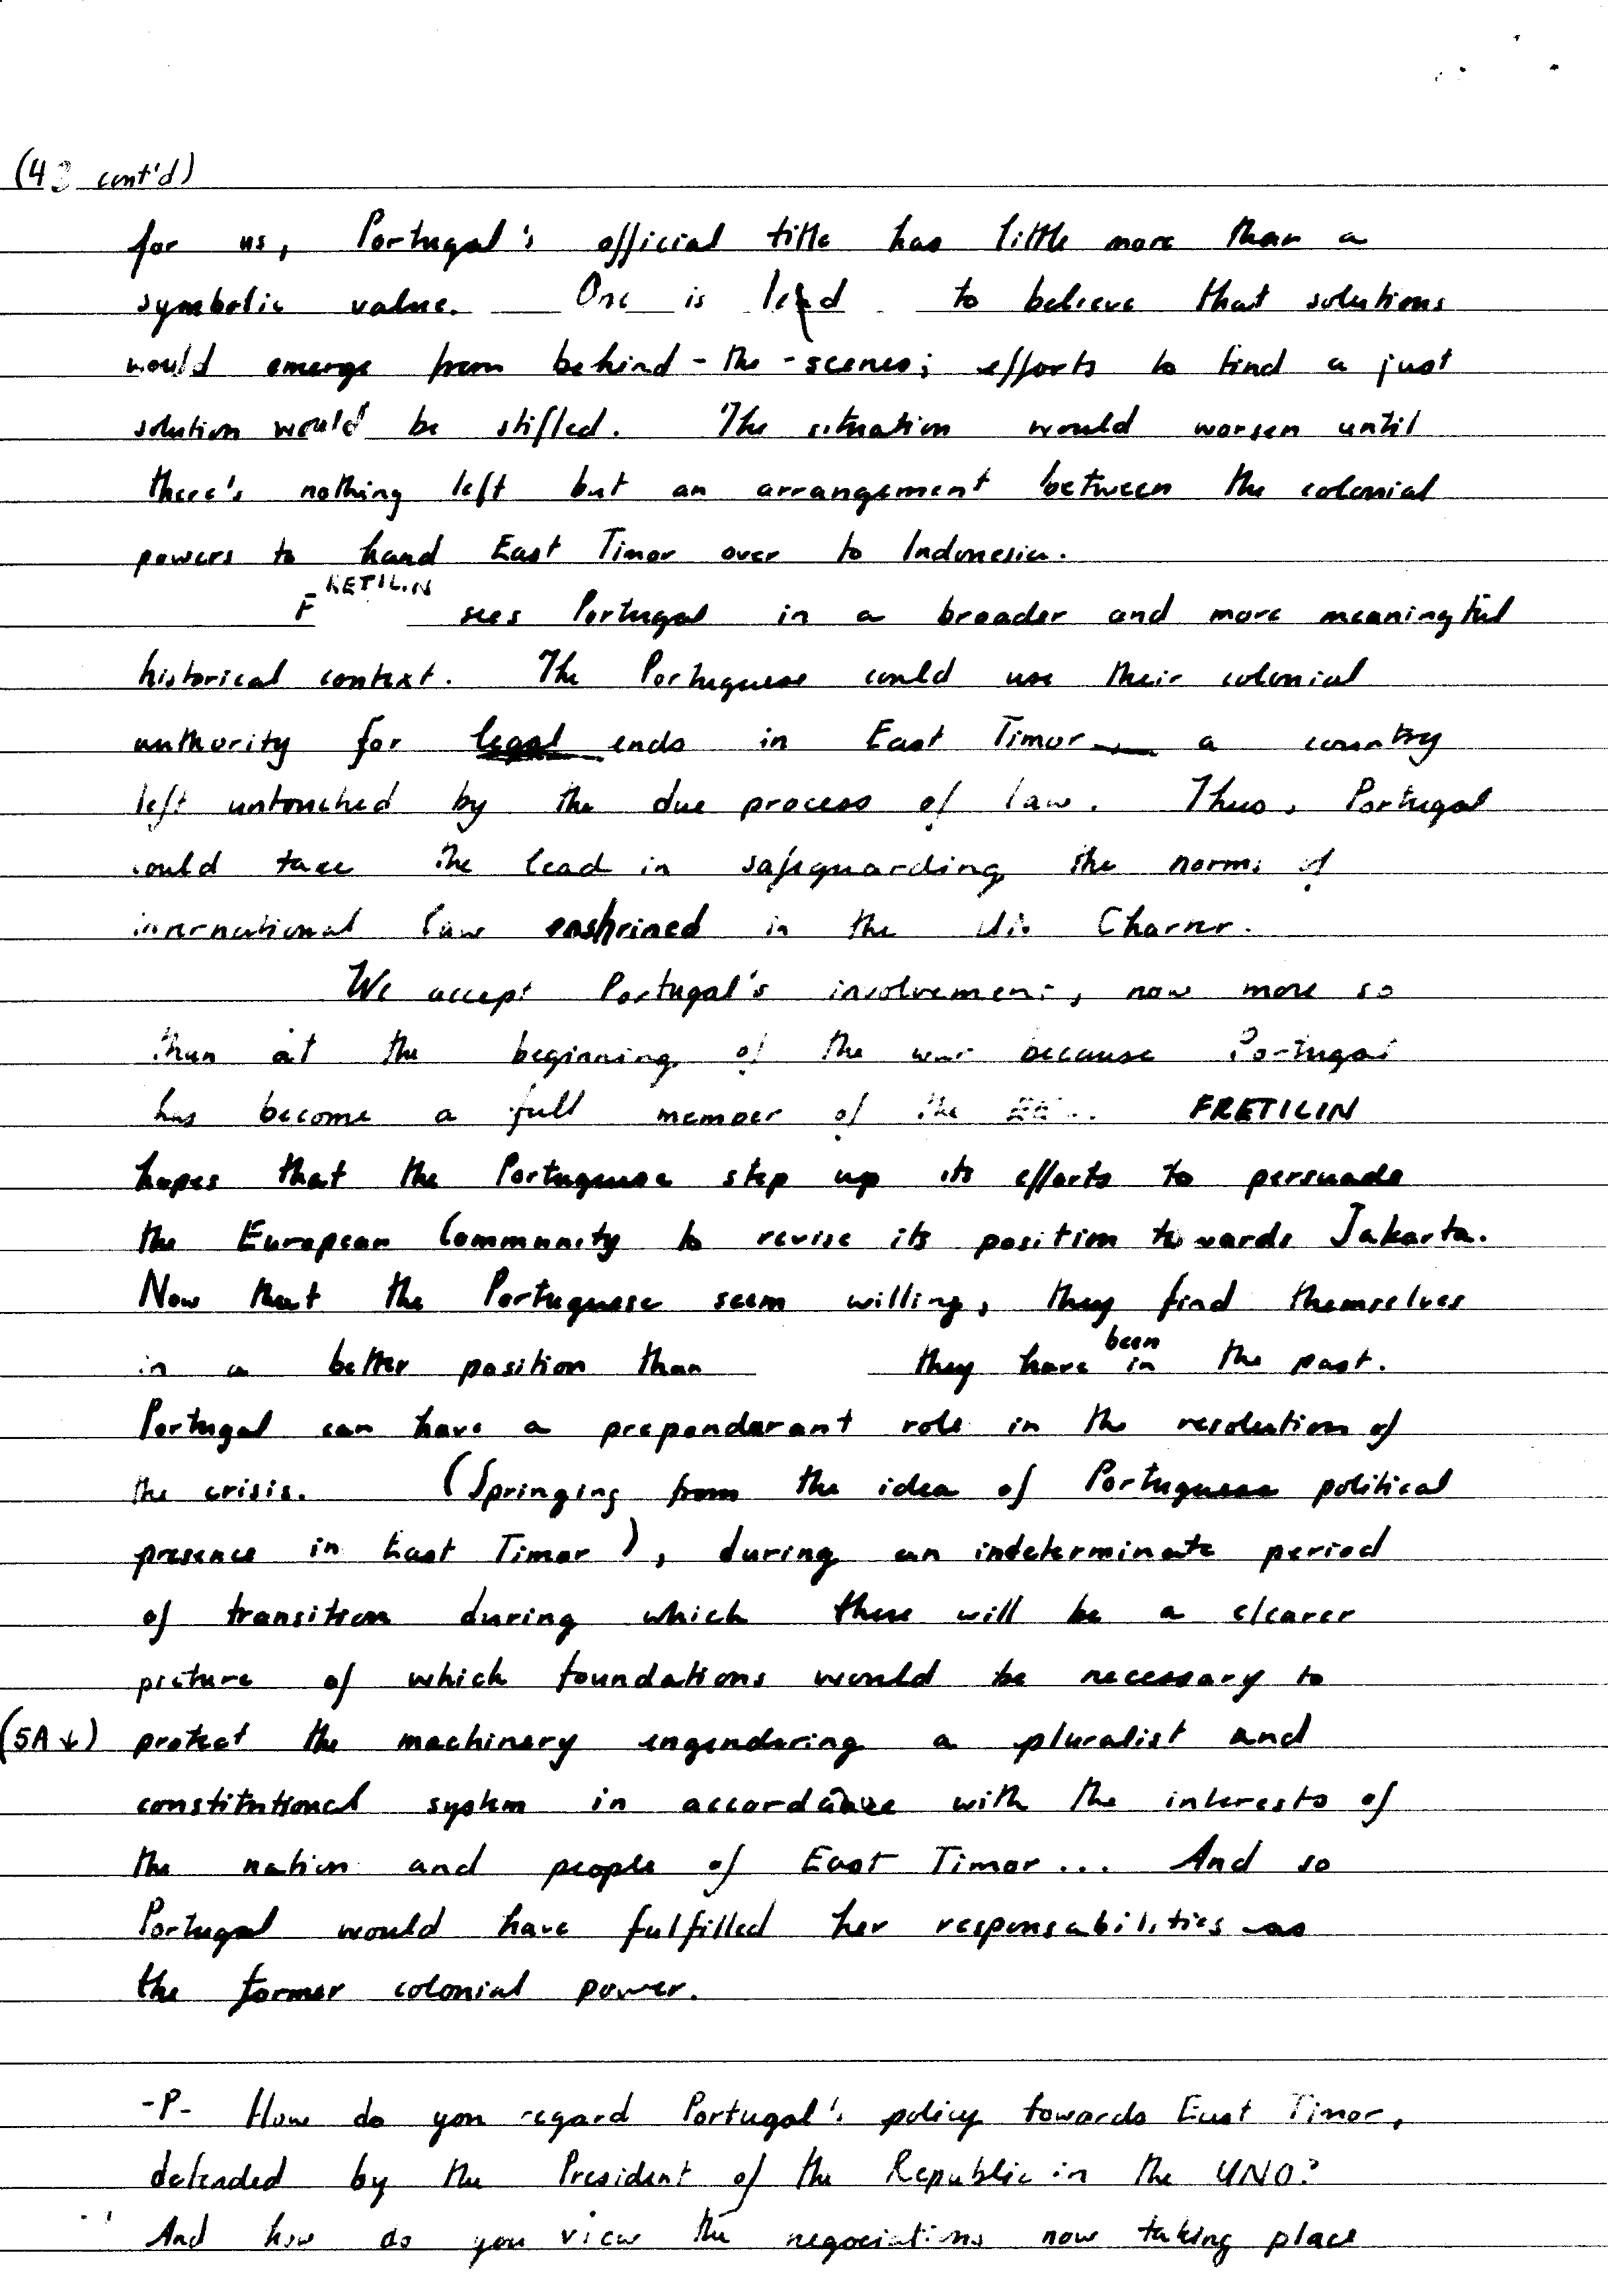 (43 cont'd)
for us, Portugal's official title has little more than a
symbolic value. One is led to believe that solutions
would emerge from behind-the-scenes; efforts to find a just
solution would be stifled. The situation would worsen until
there's nothing left but an arrangement between the colonial
powers to hand East Timor over to Indonesia.
FRETILIN sees Portugal in a broader and more meaningful
historical context. The Portuguese could use their colonial
authority for legal ends in East Timor — a country
left untouched by the due process of law. Thus, Portugal
could take the lead in safeguarding the norms of
international law enshrined in the UN Charter.
We accept Portugal's involvement, now more so
than at the beginning of the war because Portugal
has become a full member of the FRETILIN
hopes that the Portuguese step up its efforts to persuade
the European Community to revise its position towards Jakarta.
Now that the Portuguese seem willing, they find themselves
in a better position than they have been in the past.
Portugal can have a preponderant role in the resolution of
the crisis. (Springing from the idea of Portuguese political
presence in East Timor), during an indeterminate period
of transition during which there will be a clearer
picture of which foundations would be necessary to
(5A↓) protect the machinery engendering a pluralist and
constitutional system in accordance with the interests of
the nation and people of East Timor... And so
Portugal would have fulfilled her responsabilities as
the former colonial power.
-P- How do you regard Portugal's policy towards East Timor,
defended by the President of the Republic in the UNO?
And how do you view the negociations now taking place